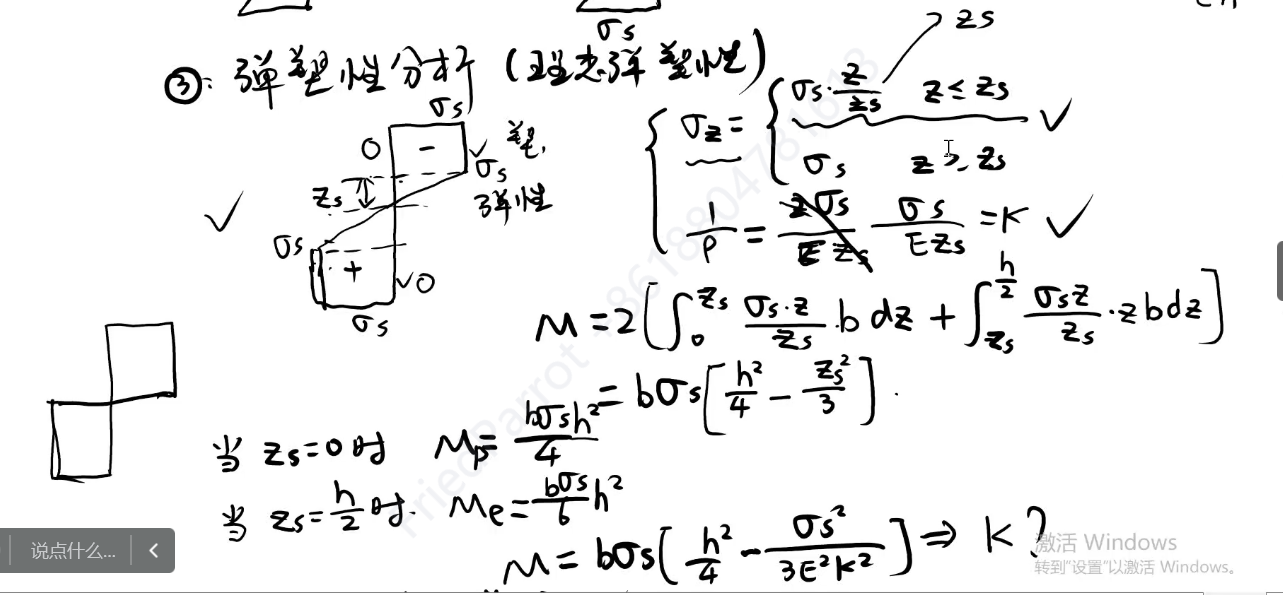 σs
zs
③: 弹塑性分析 (理想弹塑性)
σs
0 - 塑
σs
zs 弹性
σs
+ 0
σs
σz = { σs·z/zs z≤zs
σs z≥zs
1/ρ = zσs/Ezs σs/Ezs = K
M = 2[∫₀^zs σs·z/zs ·b dz + ∫_zs^h/2 σsz/zs ·zbdz]
= bσs[h²/4 - zs²/3].
当 zs=0时 Mp= bσsh²/4
当 zs=h/2时. Me= bσs/6 h²
M = bσs[h²/4 - σs²/3E²K²] ⇒ K?
说点什么... <
激活 Windows
转到“设置”以激活 Windows。